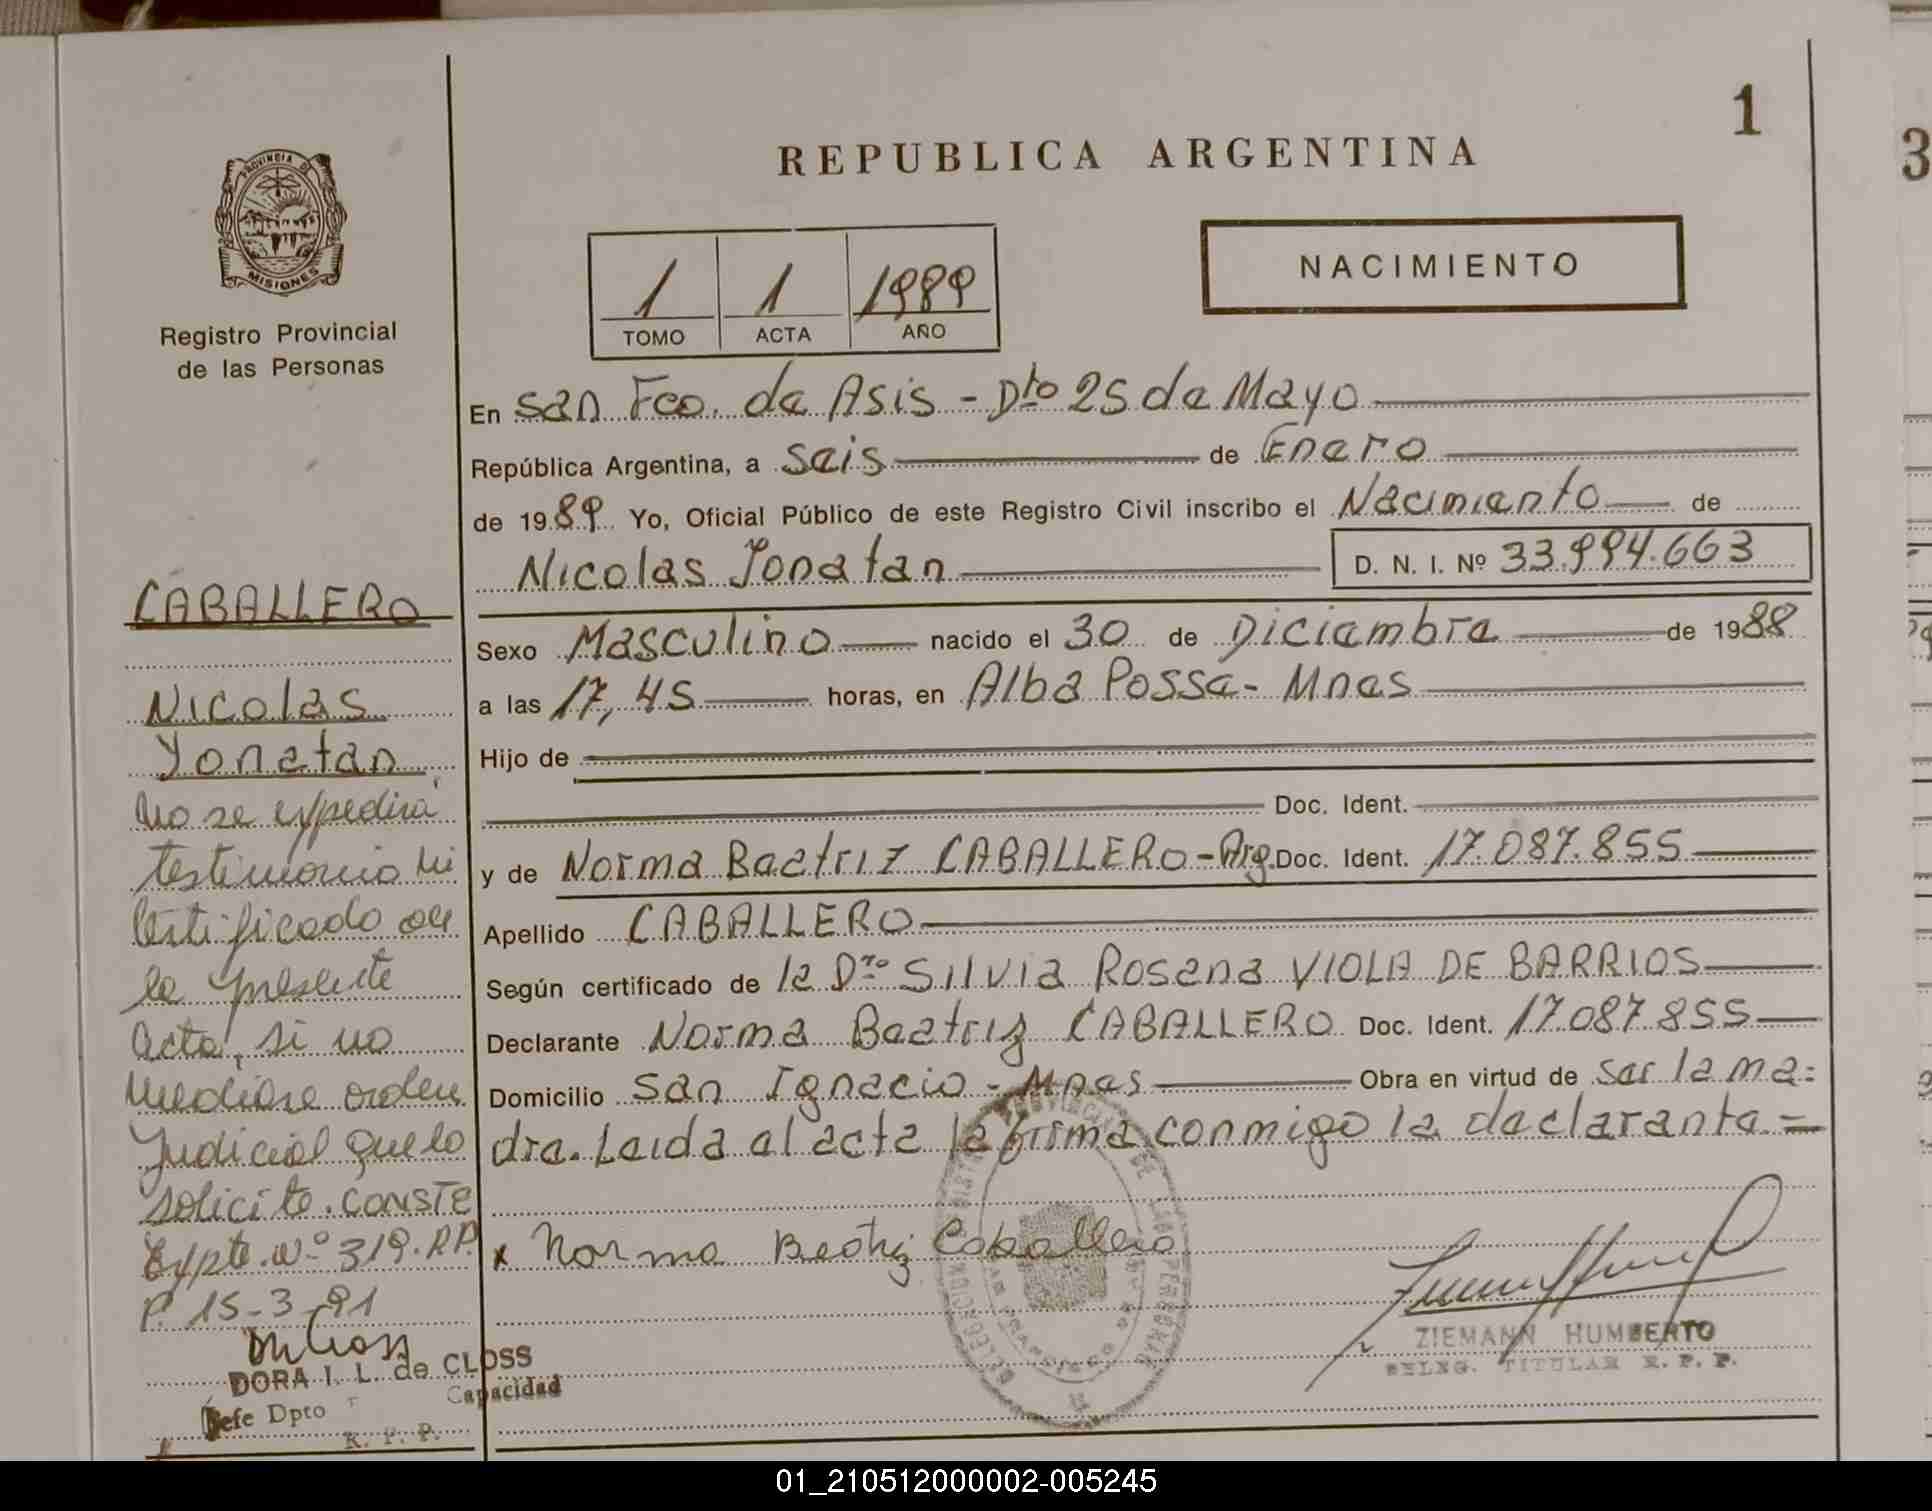 1
REPUBLICA ARGENTINA
PROVINCIA DE
MISIONES
Registro Provincial
de las Personas
1 1 1989
TOMO ACTA AÑO
NACIMIENTO
3
En San Fco. de Asis - Dto 25 de Mayo
República Argentina, a Seis de Enero
de 1989 Yo, Oficial Público de este Registro Civil inscribo el Nacimiento de
Nicolas Yonatan D. N. I. Nº 33.994.663
Sexo Masculino nacido el 30 de Diciembre de 1988
a las 17,45 horas, en Alba Posse - Mnes
Hijo de
Doc. Ident.
y de Norma Beatriz CABALLERO - Arg. Doc. Ident. 17.087.855
Apellido CABALLERO
Según certificado de la Dra Silvia Rosana VIOLA DE BARRIOS
Declarante Norma Beatriz CABALLERO Doc. Ident. 17.087.855
Domicilio San Ignacio - Mnes Obra en virtud de ser la ma=
dre. Leida el acta la firma conmigo la declarante =
x Norma Beatriz Caballero
ZIEMANN HUMBERTO
DELEG. TITULAR R. P. P.
CABALLERO
Nicolas
Yonatan
No se expedirá
testimonio ni
certificado de
la presente
acta, si no
mediare orden
Judicial que lo
solicite. CONSTE
Expte. Nº 319. R.P.
P. 15-3-91
DORA I. L. de CLOSS
Jefe Dpto Capacidad
R. P. P.
01_210512000002-005245